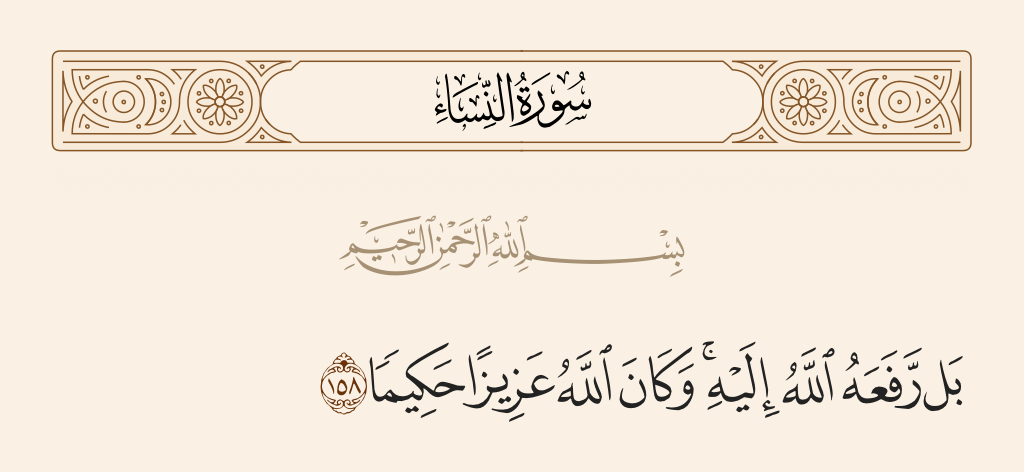 سُورَةُ النِّسَاءِ
بِسْمِ ٱللَّهِ ٱلرَّحْمَٰنِ ٱلرَّحِيمِ
بَل رَّفَعَهُ ٱللَّهُ إِلَيْهِ ۚ وَكَانَ ٱللَّهُ عَزِيزًا حَكِيمًا ١٥٨